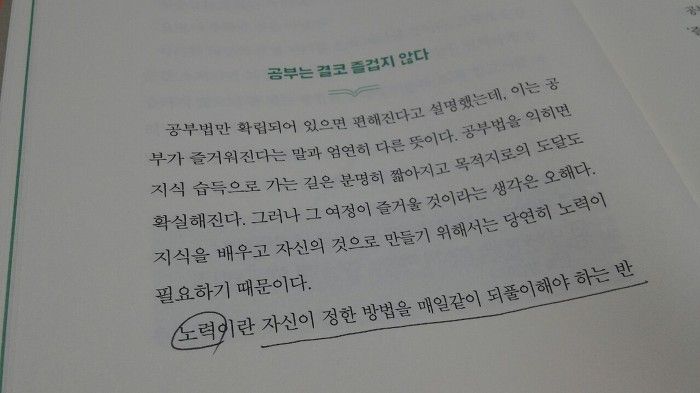 공부는 결코 즐겁지 않다
공부법만 확립되어 있으면 편해진다고 설명했는데, 이는 공
부가 즐거워진다는 말과 엄연히 다른 뜻이다. 공부법을 익히면
지식 습득으로 가는 길은 분명히 짧아지고 목적지로의 도달도
확실해진다. 그러나 그 여정이 즐거울 것이라는 생각은 오해다.
지식을 배우고 자신의 것으로 만들기 위해서는 당연히 노력이
필요하기 때문이다.
노력이란 자신이 정한 방법을 매일같이 되풀이해야 하는 반